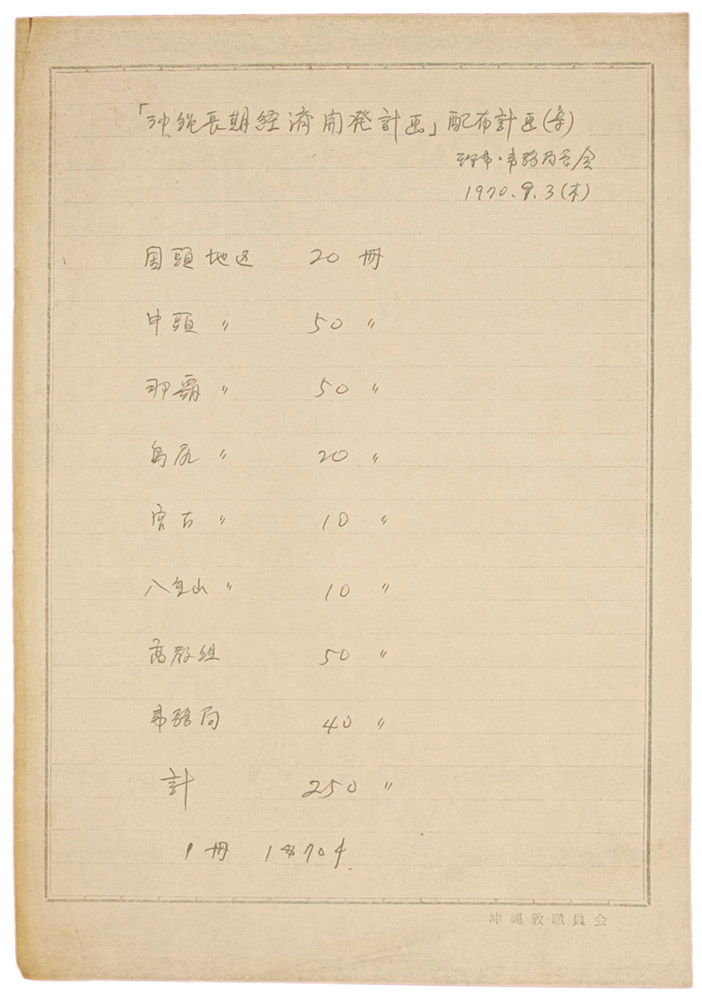 「沖縄長期経済開発計画」配布計画(案)
理事・事務局委会
1970.9.3(木)
国頭地区 20 冊
中頭 〃 50 〃
那覇 〃 50 〃
島尻 〃 20 〃
宮古 〃 10 〃
八重山 〃 10 〃
高教組 50 〃
事務局 40 〃
計 250 〃
1冊 1$70¢
沖縄教職員会